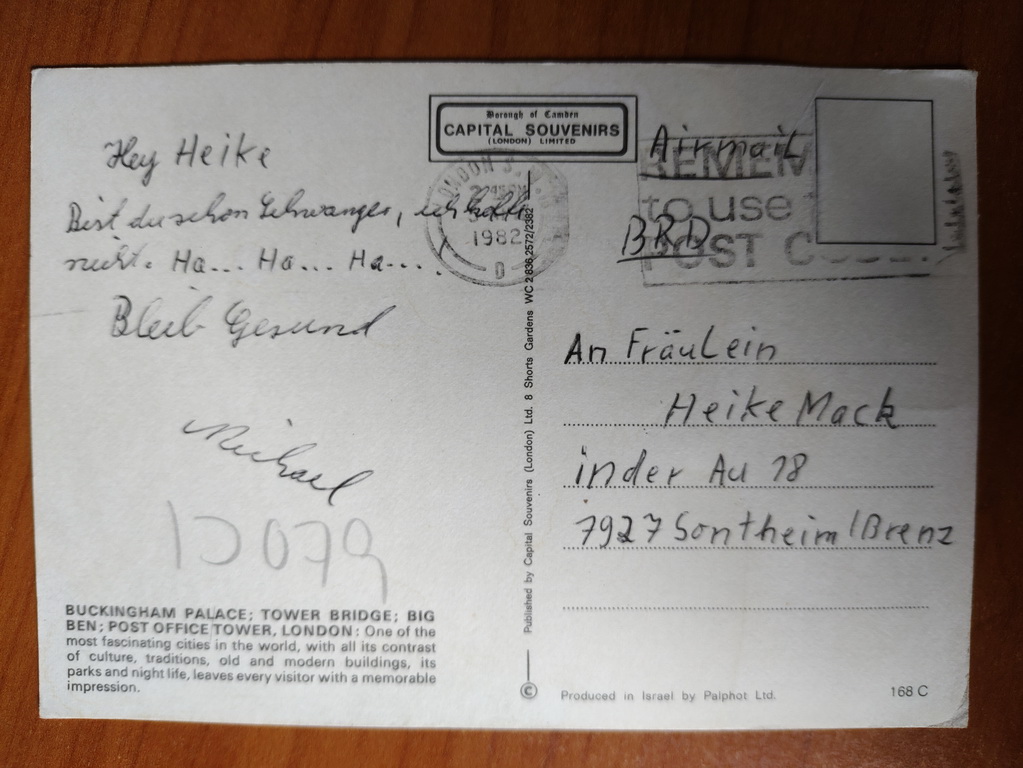 Hey Heike
Bist du schon Schwanger, ich hoffe
nicht. Ha... Ha... Ha....
Bleib Gesund
Michael
BUCKINGHAM PALACE; TOWER BRIDGE; BIG
BEN; POST OFFICE TOWER, LONDON: One of the
most fascinating cities in the world, with all its contrast
of culture, traditions, old and modern buildings, its
parks and night life, leaves every visitor with a memorable
impression.
Borough of Camden
CAPITAL SOUVENIRS
(LONDON) LIMITED
LONDON S.
1982
Published by Capital Souvenirs (London) Ltd. 8 Shorts Gardens WC2 836 2572/2382
©
Airmail
BRD
REMEM
to use
POST CODE
An Fräulein
Heike Mack
in der Au 18
7927 Sontheim/Brenz
Produced in Israel by Palphot Ltd.
168 C